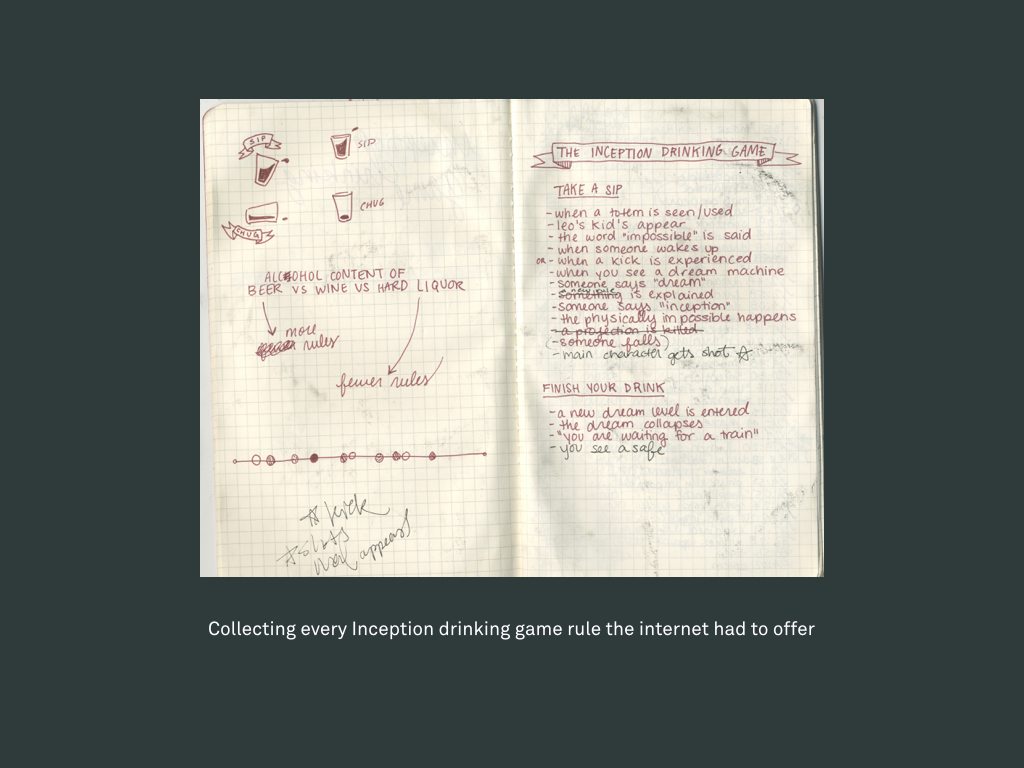 SIP
SIP
CHUG
CHUG
ALCOHOL CONTENT OF
BEER VS WINE VS HARD LIQUOR
more
rules
fewer rules
kick
appears
THE INCEPTION DRINKING GAME
TAKE A SIP
- when a totem is seen/used
- leo's kid's appear
- the word "impossible" is said
- when someone wakes up
OR - when a kick is experienced
- when you see a dream machine
- someone says "dream"
- something is explained
- someone says "inception"
- the physically impossible happens
- a projection is killed
(- someone falls)
- main character gets shot ☆
FINISH YOUR DRINK
- a new dream level is entered
- the dream collapses
- "you are waiting for a train"
- you see a safe
Collecting every Inception drinking game rule the internet had to offer